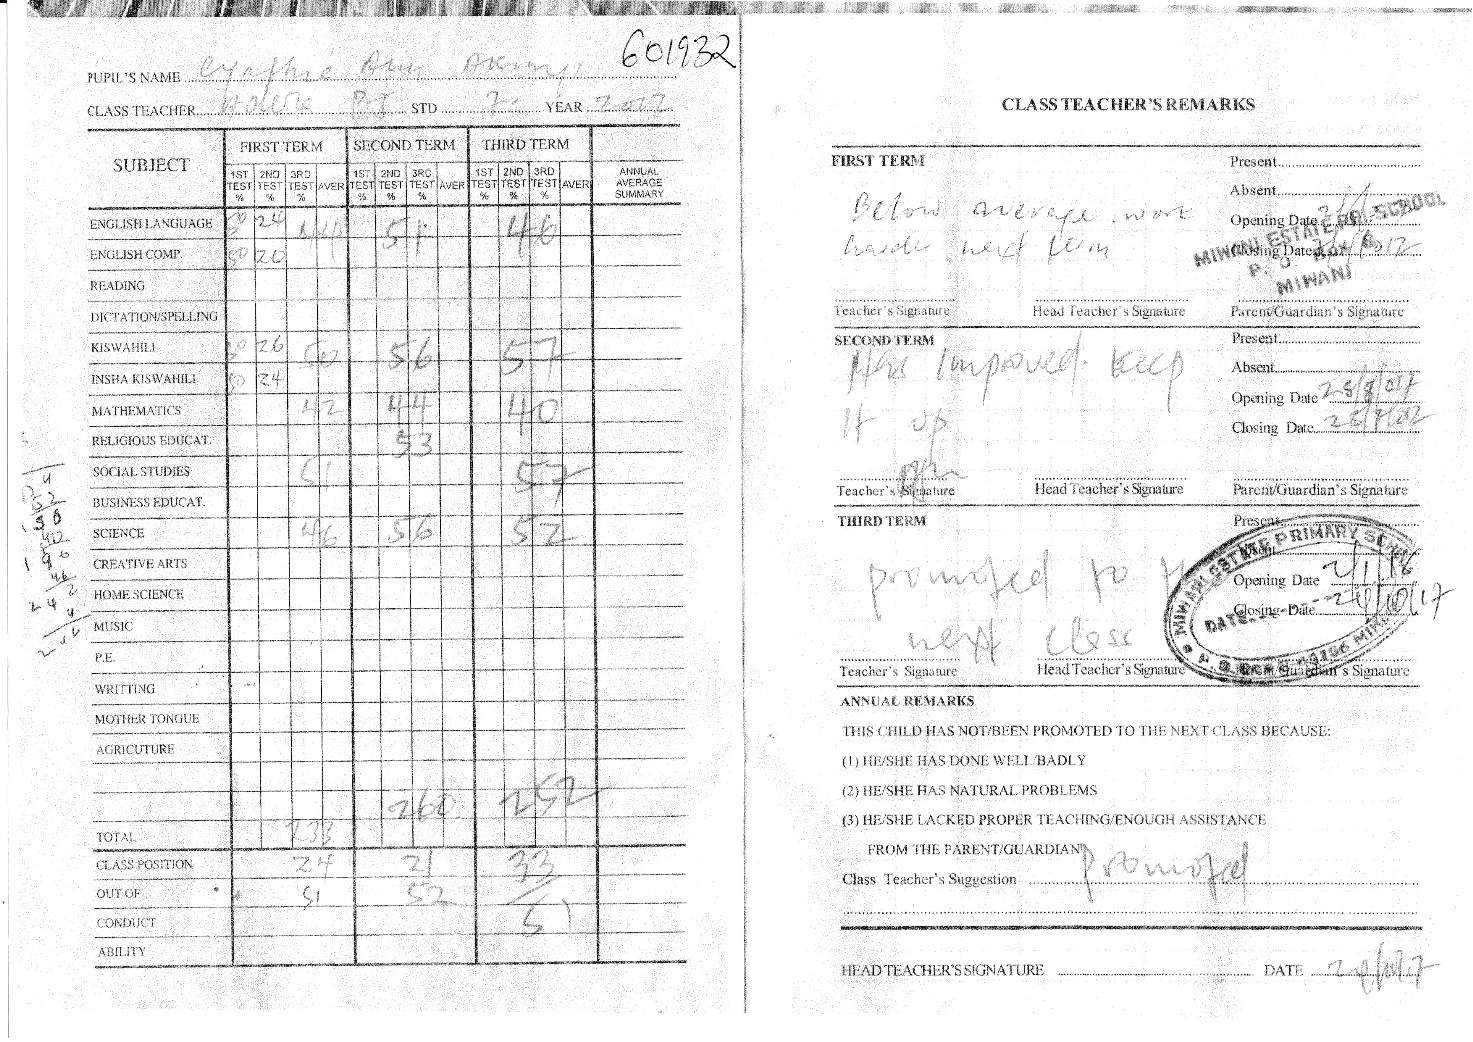 601932
PUPIL'S NAME Cynthia Ann Akinyi
CLASS TEACHER STD 7 YEAR 2017
SUBJECT FIRST TERM SECOND TERM THIRD TERM
1ST TEST % 2ND TEST % 3RD TEST % AVER 1ST TEST % 2ND TEST % 3RD TEST % AVER 1ST TEST % 2ND TEST % 3RD TEST % AVER ANNUAL AVERAGE SUMMARY
ENGLISH LANGUAGE 50 24 44 51 46
ENGLISH COMP. 50 20
READING
DICTATION/SPELLING
KISWAHILI 50 26 50 56 57
INSHA KISWAHILI 50 24
MATHEMATICS 42 44 40
RELIGIOUS EDUCAT. 53
SOCIAL STUDIES 51 57
BUSINESS EDUCAT.
SCIENCE 46 56 52
CREATIVE ARTS
HOME SCIENCE
MUSIC
P.E.
WRITTING
MOTHER TONGUE
AGRICUTURE
260 252
TOTAL 233
CLASS POSITION 24 21 33
OUT OF 51 52 51
CONDUCT
ABILITY
CLASS TEACHER'S REMARKS
FIRST TERM Present
Absent
Below average work Opening Date
harder next term Closing Date
MIWANI ESTATE PRI-SCHOOL
P. O. BOX
MIWANI
Teacher's Signature Head Teacher's Signature Parent/Guardian's Signature
SECOND TERM Present
Has Improved. Keep Absent
It up Opening Date
Closing Date
Teacher's Signature Head Teacher's Signature Parent/Guardian's Signature
THIRD TERM Present
Absent
promoted to the Opening Date 2/1/18
next class Closing Date
MIWANI ESTATE PRIMARY SCHOOL
DATE
Teacher's Signature Head Teacher's Signature Parent/Guardian's Signature
ANNUAL REMARKS
THIS CHILD HAS NOT/BEEN PROMOTED TO THE NEXT CLASS BECAUSE:
(1) HE/SHE HAS DONE WELL/BADLY
(2) HE/SHE HAS NATURAL PROBLEMS
(3) HE/SHE LACKED PROPER TEACHING/ENOUGH ASSISTANCE
FROM THE PARENT/GUARDIAN
Class Teacher's Suggestion promoted
HEAD TEACHER'S SIGNATURE DATE